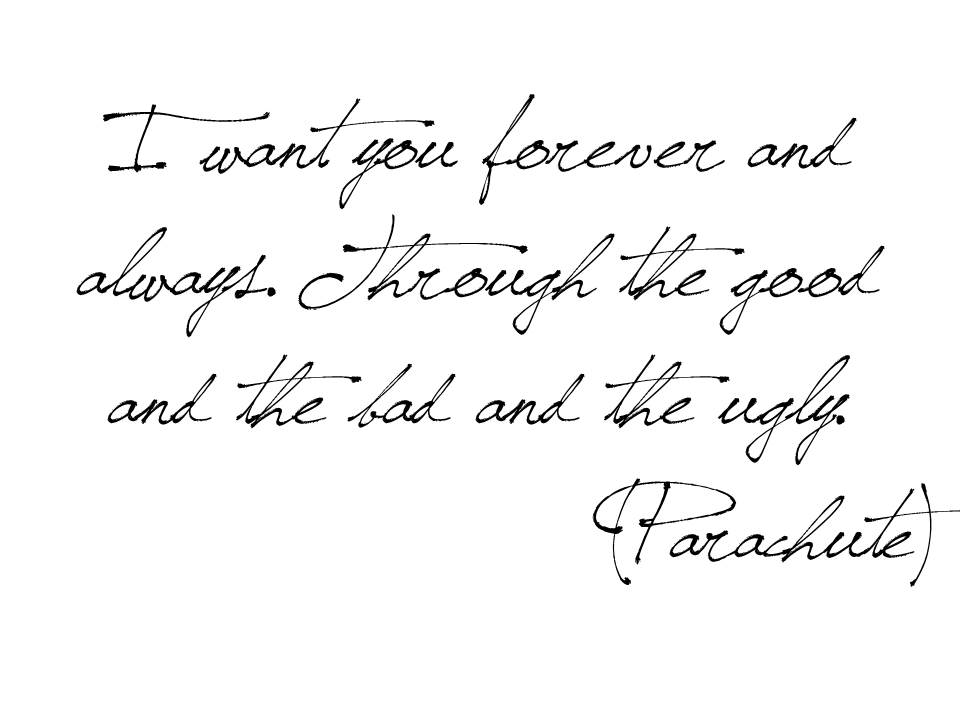 I want you forever and
always. Through the good
and the bad and the ugly.
(Parachute)